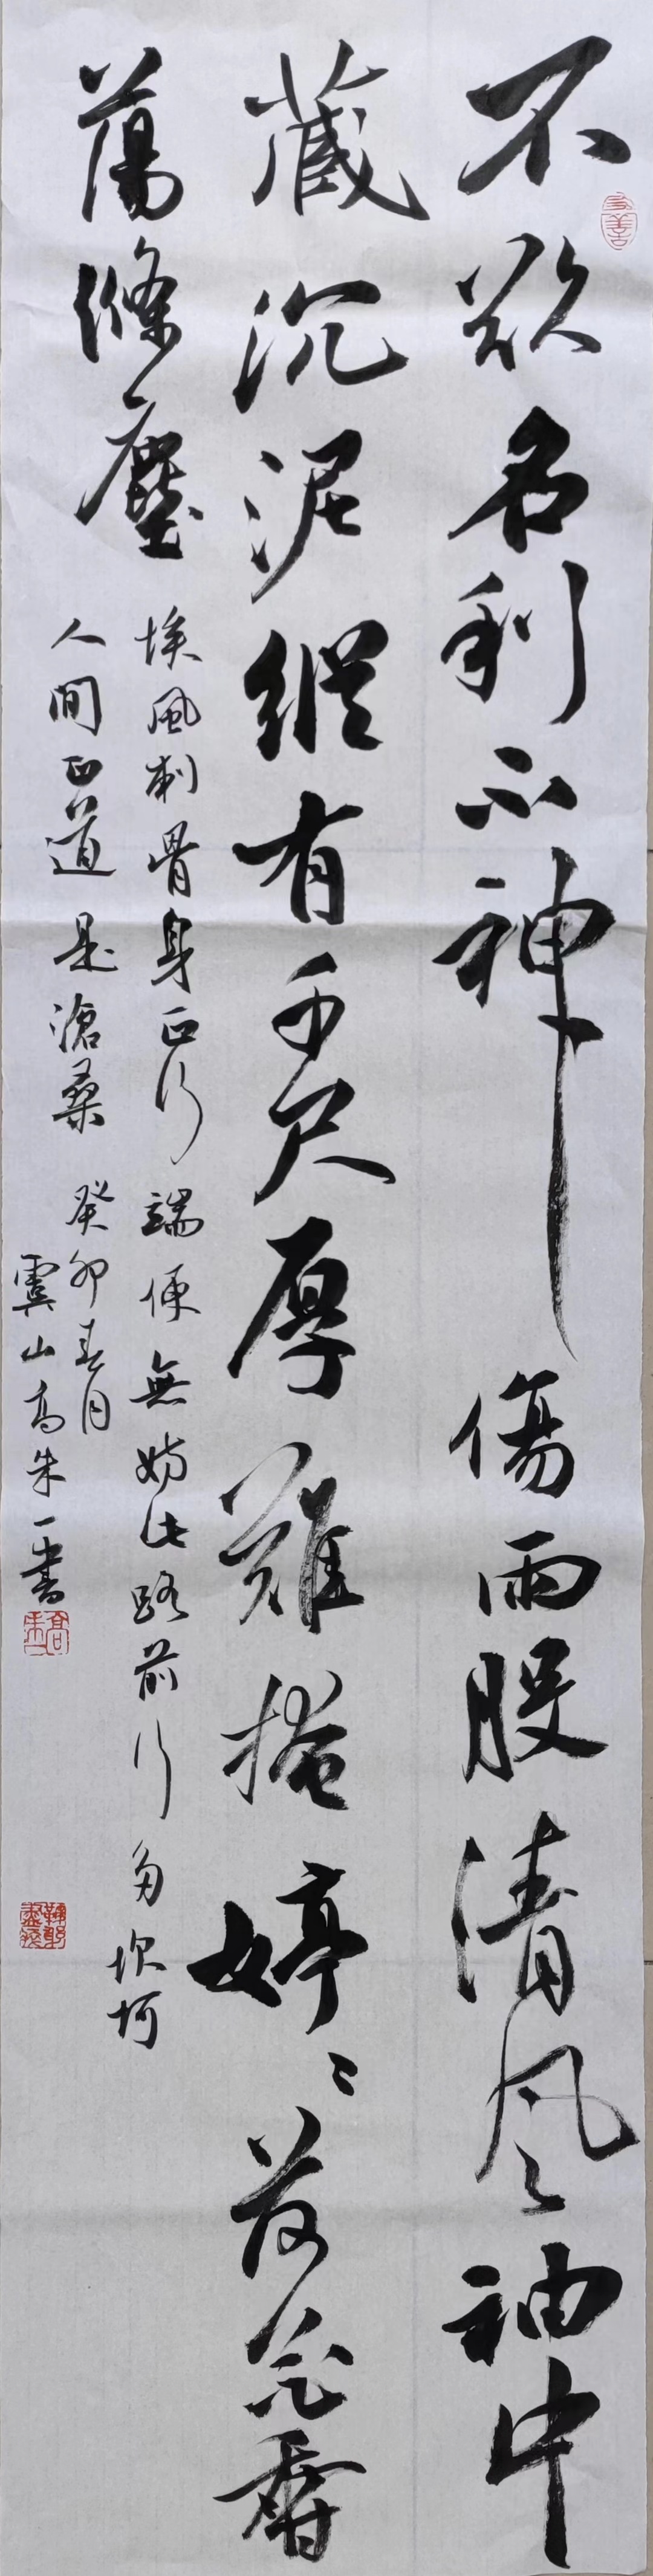 不欲名利不神傷兩股清風袖中
藏沉泥縱有千尺厚難掩婷〻荷花香
蕩滌塵
埃風刺骨身正行端便無妨此路前行多坎坷
人間正道是滄桑 癸卯春月
虞山高朱一書